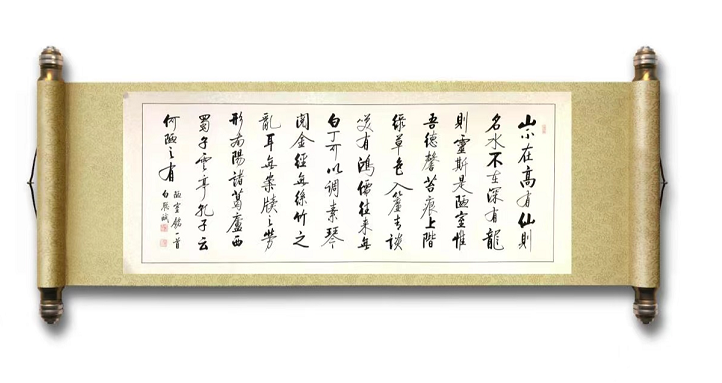 山不在高有仙則
名水不在深有龍
則靈斯是陋室惟
吾德馨苔痕上階
綠草色入簾青談
笑有鴻儒往来無
白丁可以调素琴
閱金經無絲竹之
亂耳無案牘之勞
形南陽諸葛廬西
蜀子雲亭孔子云
何陋之有
陋室銘一首